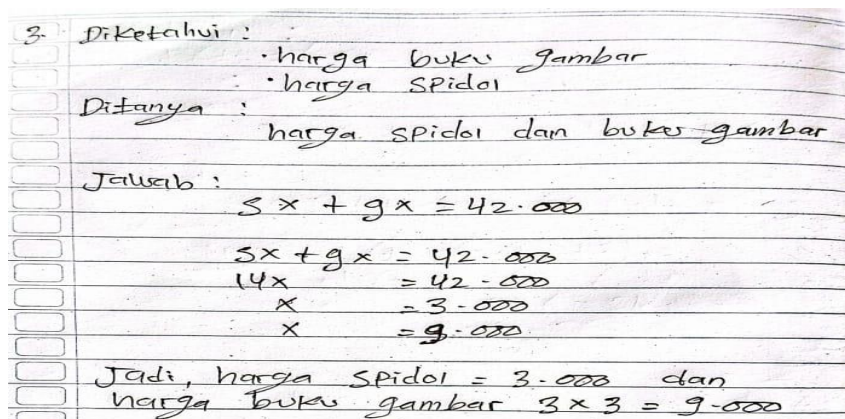 3. Diketahui :
• harga buku gambar
• harga spidol
Ditanya :
harga spidol dan buku gambar
Jawab :
5x + 9x = 42.000
5x + 9x = 42.000
14x = 42.000
x = 3.000
x = 9.000
Jadi, harga spidol = 3.000 dan
harga buku gambar 3 x 3 = 9.000